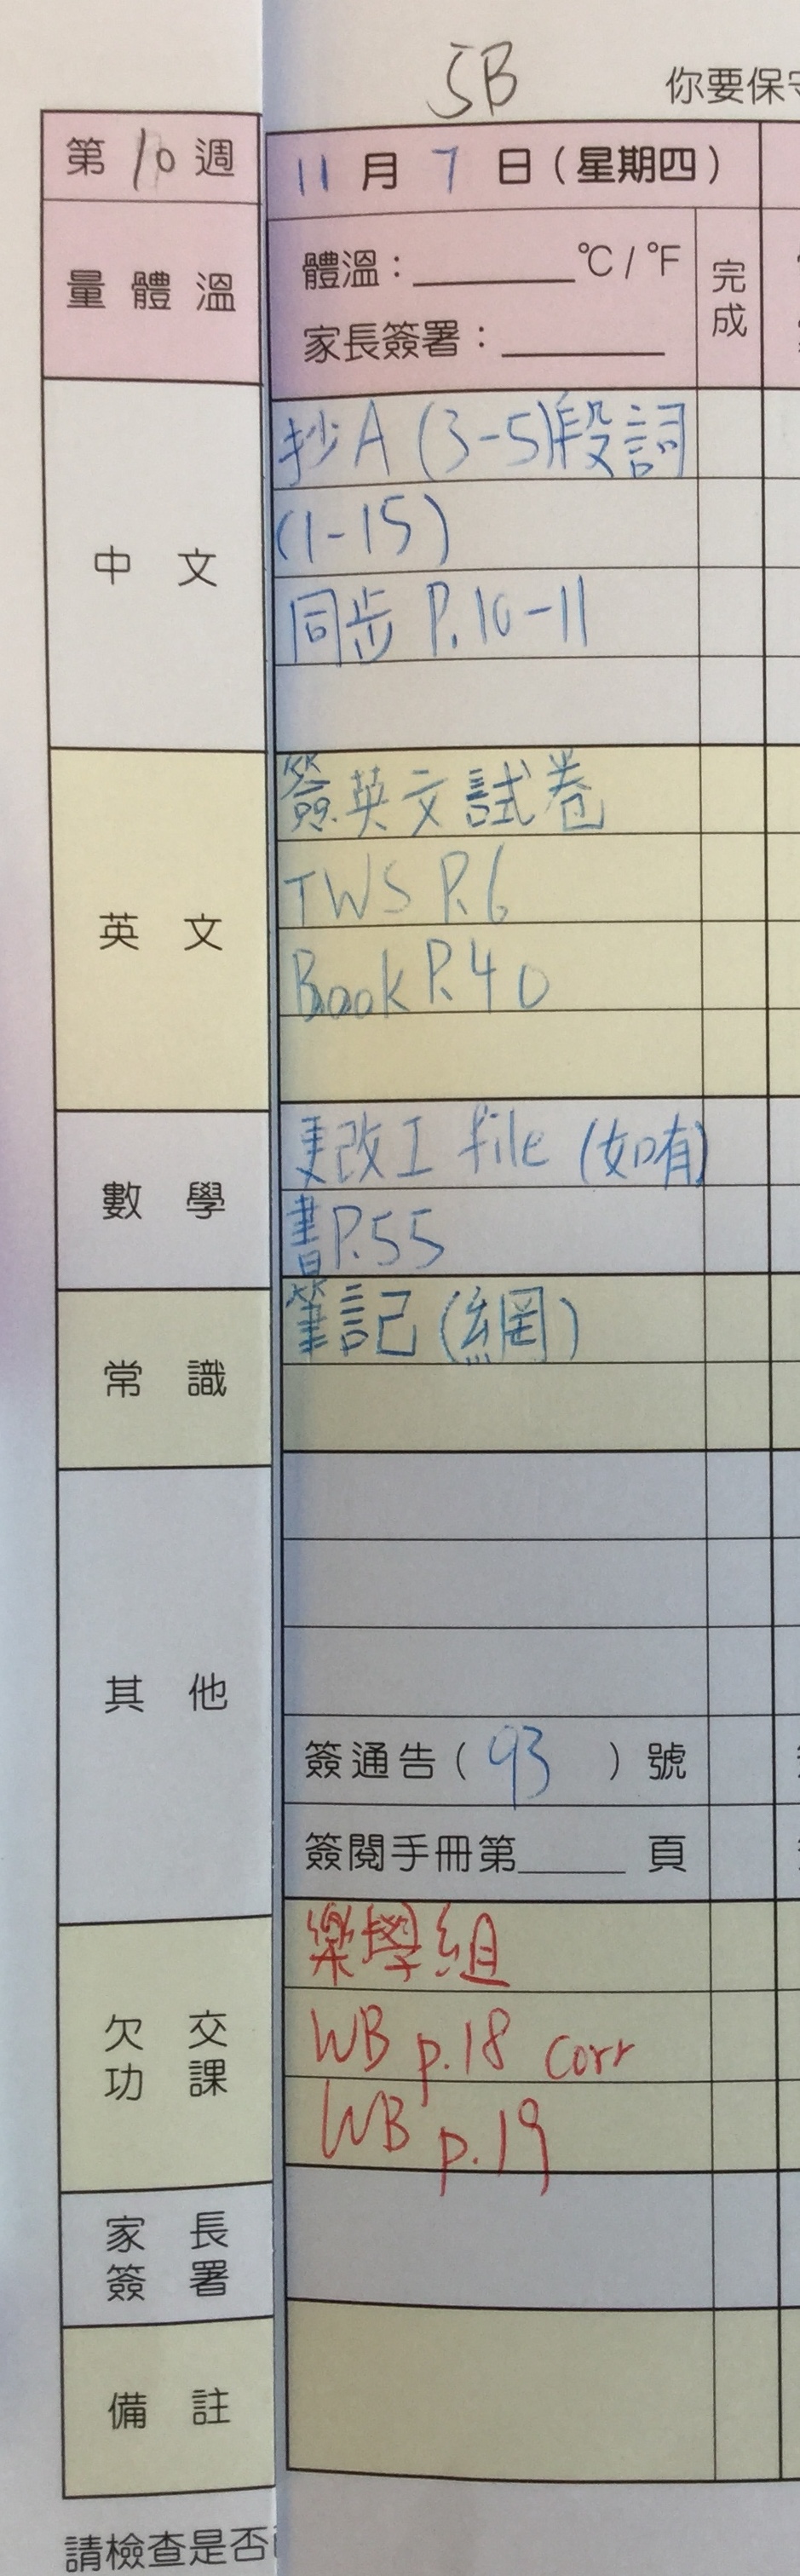 5B
你要保守
第10週
11月7日(星期四)
量體溫
體溫:______℃/℉
完成
家長簽署:______
中文
抄A(3-5)段詞
(1-15)
同步 P.10-11
英文
簽英文試卷
TWS P.6
Book P.40
數學
更改工 file (如有)
書P.55
常識
筆記(網)
其他
簽通告(93)號
簽閱手冊第____頁
欠交功課
樂學組
WB p.18 corr
WB p.19
家長簽署
備註
請檢查是否